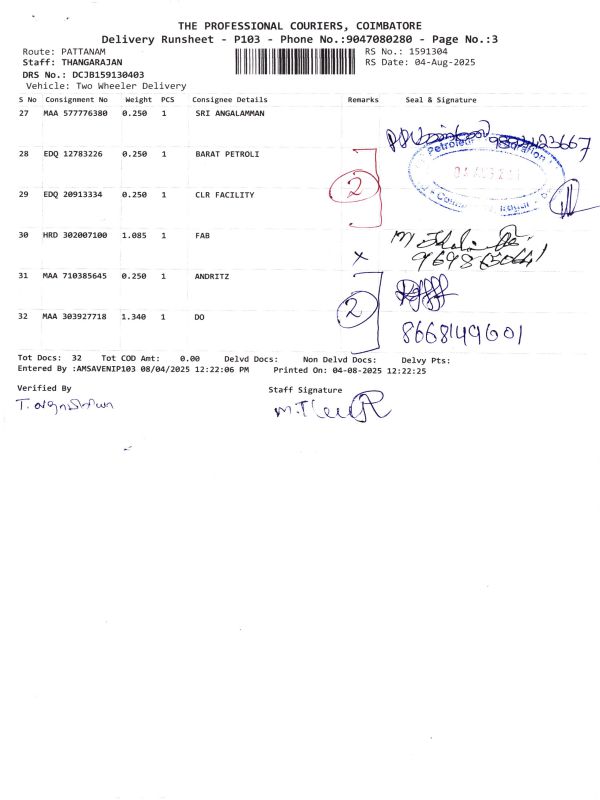 THE PROFESSIONAL COURIERS, COIMBATORE
Delivery Runsheet - P103 - Phone No.:9047080280 - Page No.:3
Route: PATTANAM
RS No.: 1591304
Staff: THANGARAJAN
RS Date: 04-Aug-2025
DRS No.: DCJB159130403
Vehicle: Two Wheeler Delivery
S No Consignment No Weight PCS Consignee Details Remarks Seal & Signature
27 MAA 577776380 0.250 1 SRI ANGALAMMAN
28 EDQ 12783226 0.250 1 BARAT PETROLI
29 EDQ 20913334 0.250 1 CLR FACILITY
2
30 HRD 302007100 1.085 1 FAB
X
31 MAA 710385645 0.250 1 ANDRITZ
32 MAA 303927718 1.340 1 DO
2
8668149601
Tot Docs: 32 Tot COD Amt: 0.00 Delvd Docs: Non Delvd Docs: Delvy Pts:
Entered By :AMSAVENIP103 08/04/2025 12:22:06 PM Printed On: 04-08-2025 12:22:25
Verified By
Staff Signature